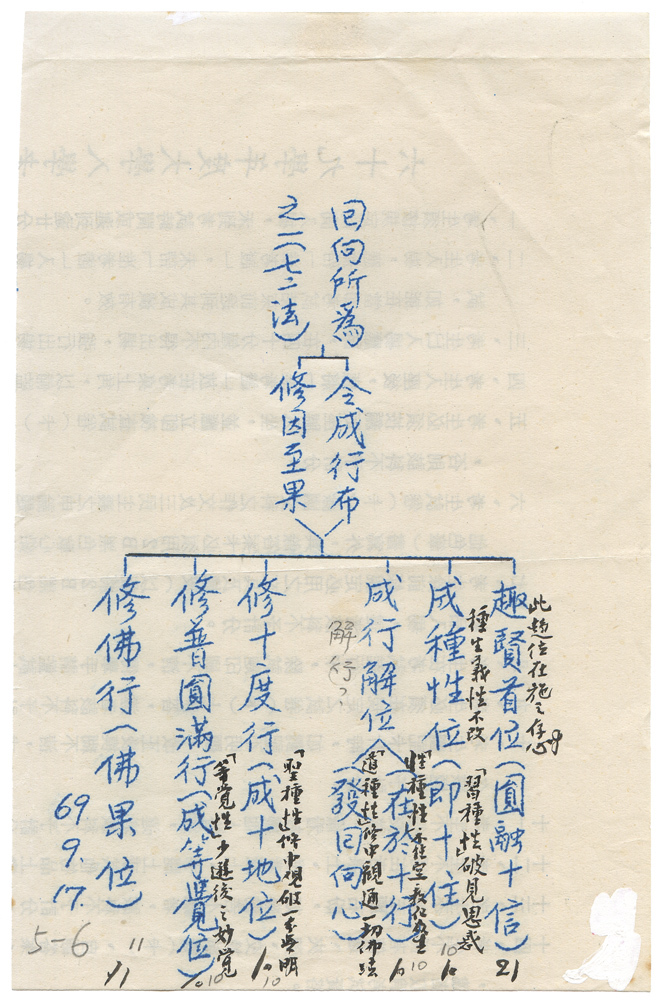 回向所為
之二(七二法)
令成行布
修因至果
趣賢首位(圓融十信)
此趣位在施之存心
21
成種性位(即十住)
種生義性不改
「習種性」破見思惑
10
成行解位(一在於十行
二發回向心)
解(行?)
10
10
「道種性」修中觀通一切佛法
修十度行(成十地位)
「聖種性」修中觀破一分無明
10
修普圓滿行(成等覺位)
「等覺性」
10
修佛行(佛果位)
11
69.
9.
17.
5-6